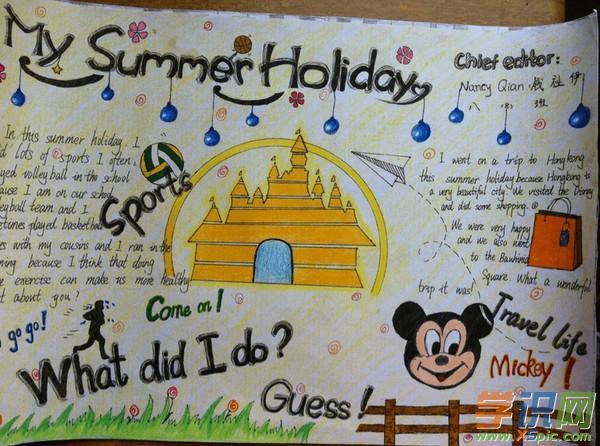 My Summer Holiday
Chief editor:
Nancy Qian 钱
八 班
In this summer holiday, I
lots of sports I often
volleyball in the school
I am on our
team and I
played basketball
with my cousins and I ran in the
because I think that doing
exercise can make us more healthy
about you?
Sports
I went on a trip to Hongkong
this summer holiday because Hongkong is
a very beautiful city. We visited the Disney
and did some shopping.
We were very happy
and we also went
to the Bauhinia
Square. What a wonderful
trip it was!
Come on!
go go!
Travel life
What did I do?
Mickey!
Guess!
学识网
www.xspic.com